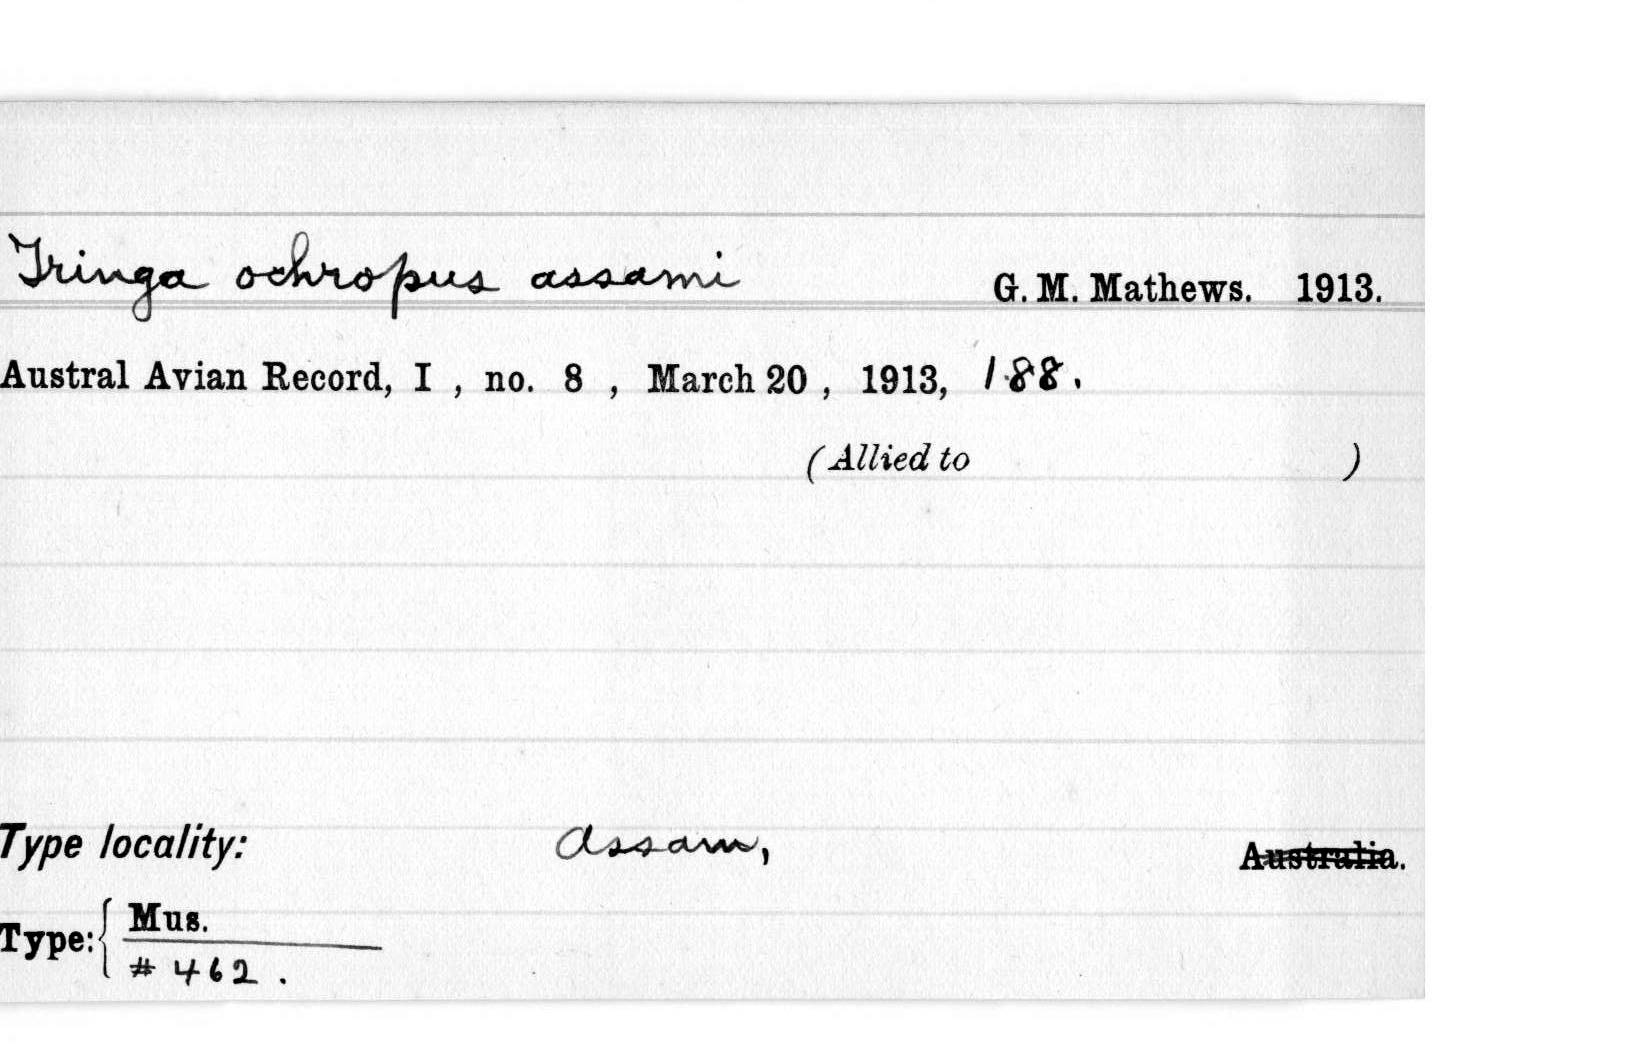 Tringa ochropus assami G. M. Mathews. 1913.
Austral Avian Record, I , no. 8 , March 20 , 1913, 188.
(Allied to )
Type locality: Assam, Australia.
Type: { Mus.
# 462 .